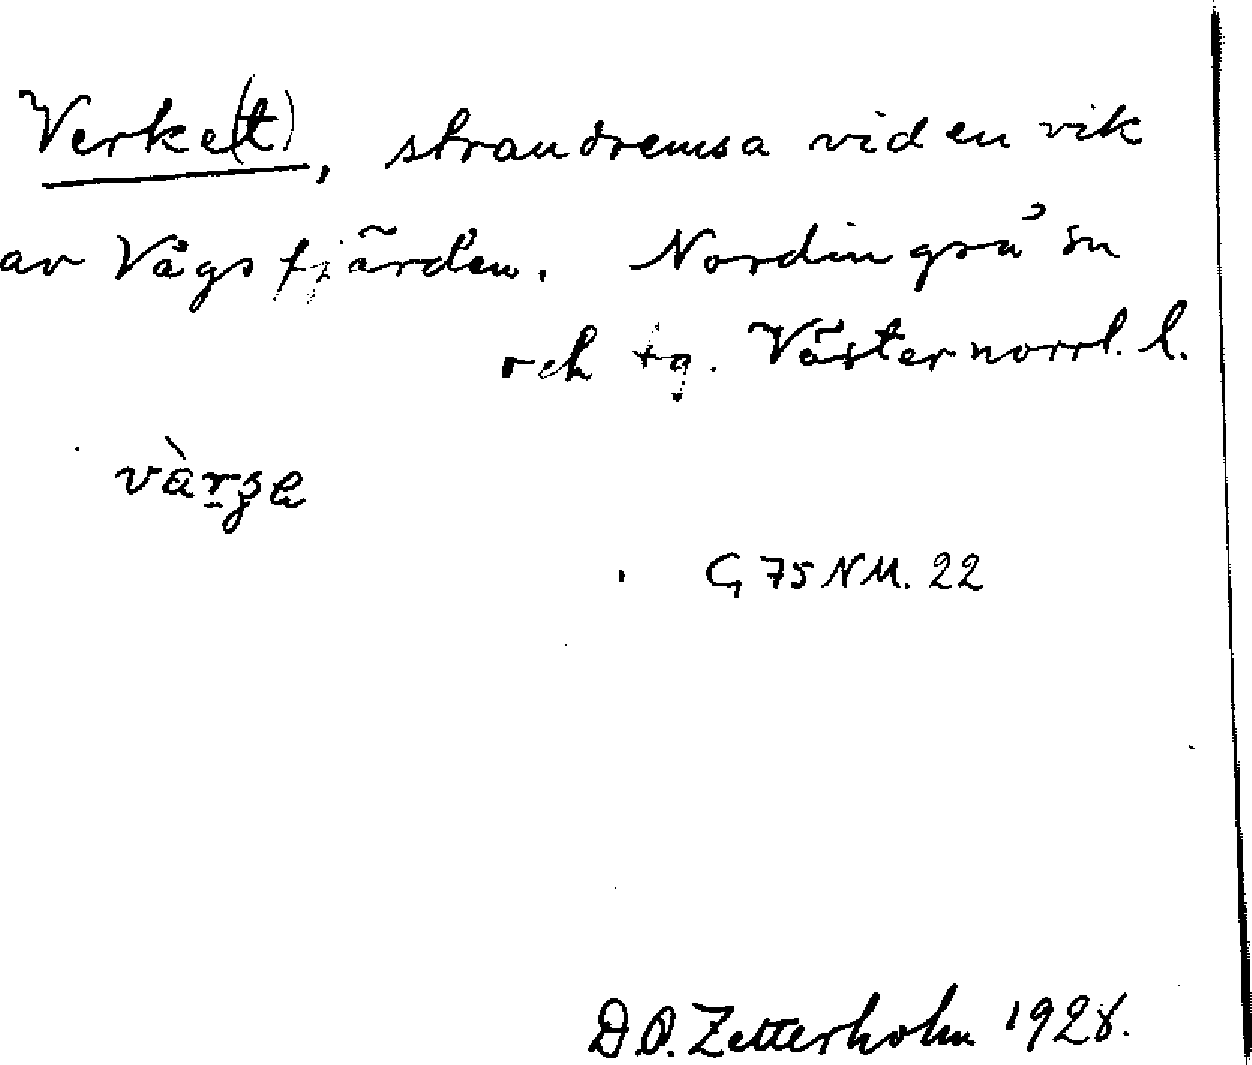 Verke(t), strandremsa vid en vik
av Vågsfjärden. Nordingrå sn
och tg. Västernorrl. l.
vàrge
G 75 NM. 22
D.O. Zetterholm 1928.